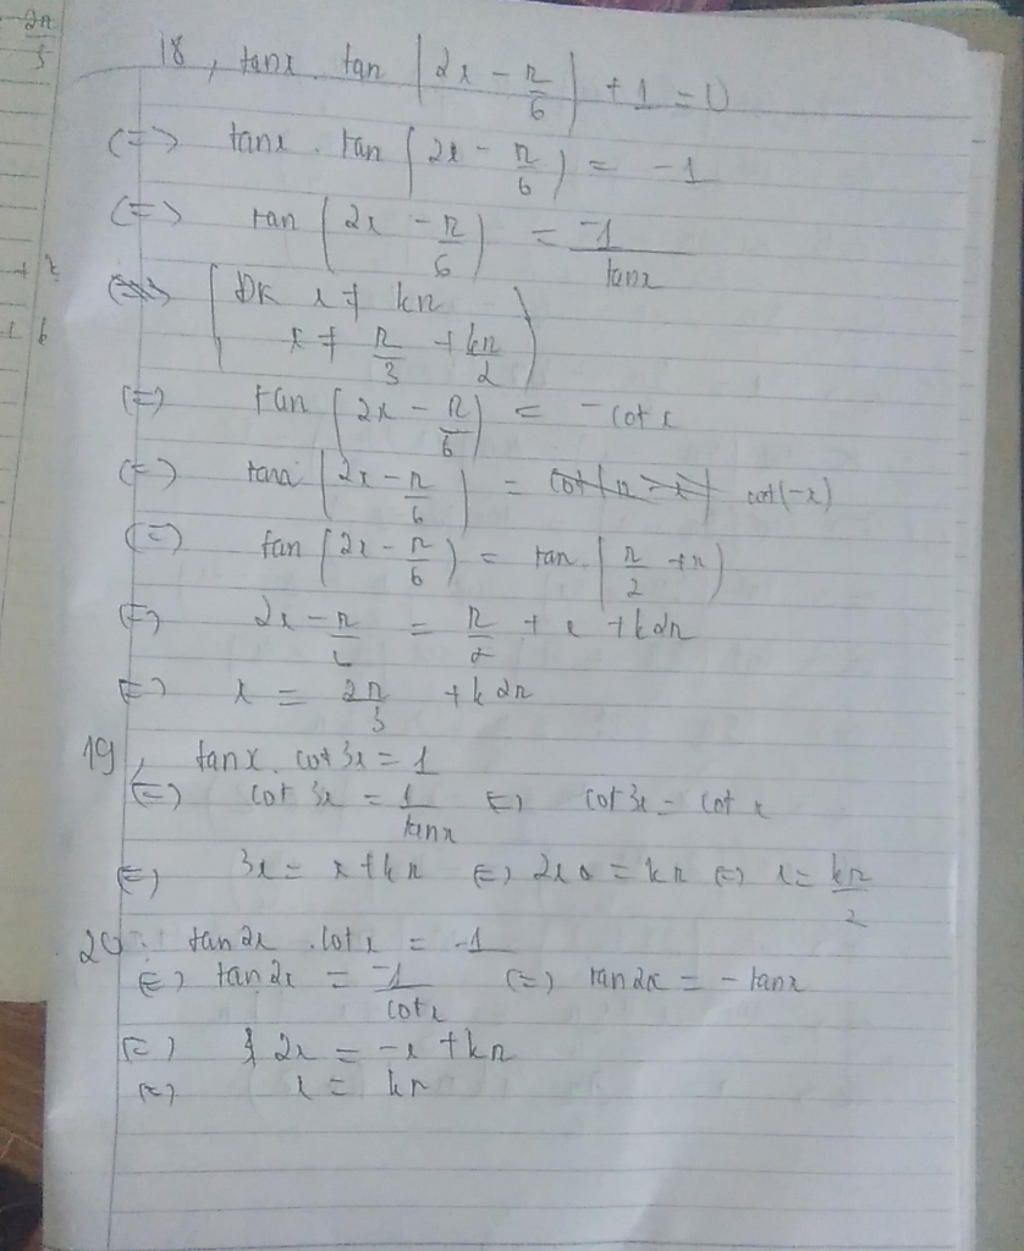 2π/3
18, tanx . tan (2x - π/6) + 1 = 0
(=) tanx . tan (2x - π/6) = -1
(=) tan (2x - π/6) = -1/tanx
(ĐK x ≠ kπ
x ≠ π/3 + kπ/2)
(=) tan (2x - π/6) = -cotx
(=) tan (2x - π/6) = cot(-x)
(=) tan (2x - π/6) = tan (π/2 + x)
(=) 2x - π/6 = π/2 + x + k2π
(=) x = 2π/3 + k2π
19, tanx . cot3x = 1
(=) cot 3x = 1/tanx (=) cot3x = cotx
(=) 3x = x + kπ (=) 2x = kπ (=) x = kπ/2
20. tan2x . cotx = -1
(=) tan2x = -1/cotx (=) tan2x = -tanx
(=) 2x = -x + kπ
(=) x = kπ